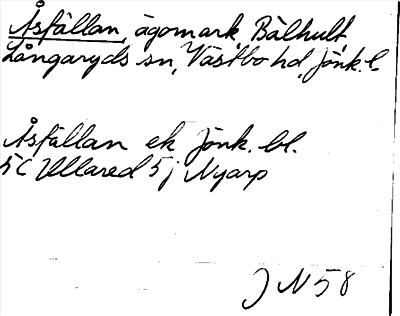 Åsfällan, ägomark, Bälhult
Långaryds sn, Västbo hd, Jönk. l.
Åsfällan ek Jönk. bl.
5C Ullared 5j Nyarp
J N 58